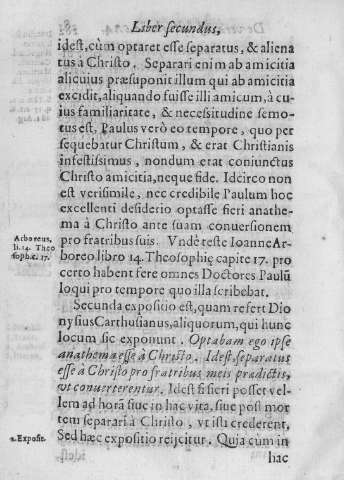 Liber secundus,
idest, cùm optaret esse separatus, & aliena
tus à Christo. Separari enim ab amicitia
alicuius præsuponit illum qui ab amicitia
excidit, aliquando fuisse illi amicum, à cu-
ius familiaritate, & necessitudine semo-
tus est, Paulus verò eo tempore, quo per
sequebatur Christum, & erat Christianis
infestissimus, nondum erat coniunctus
Christo amicitia, neque fide. Idcirco non
est verisimile, nec credibile Paulum hoc
excellenti desiderio optasse fieri anathe-
ma à Christo ante suam conuersionem
Arboreus,
li. 14. Theo
sophæ. 17.
pro fratribus suis. Vndè teste Ioanne Ar-
boreo libro 14. Theosophię capite 17. pro
certo habent fere omnes Doctores Paulũ
loqui pro tempore quo illa scribebat.
Secunda expositio est, quam refert Dio
nysius Carthusianus, aliquorum, qui hunc
locum sic exponunt. Optabam ego ipse
anathema esse à Christo. Idest, separatus
esse à Christo pro fratribus meis prædictis,
vt conuerterentur. Idest si fieri posset vel-
lem ad horã siue in hac vita, siue post mor
tem separari à Christo, vt isti crederent,
2. Exposit.
Sed hæc expositio reijcitur. Quia cùm in
hac